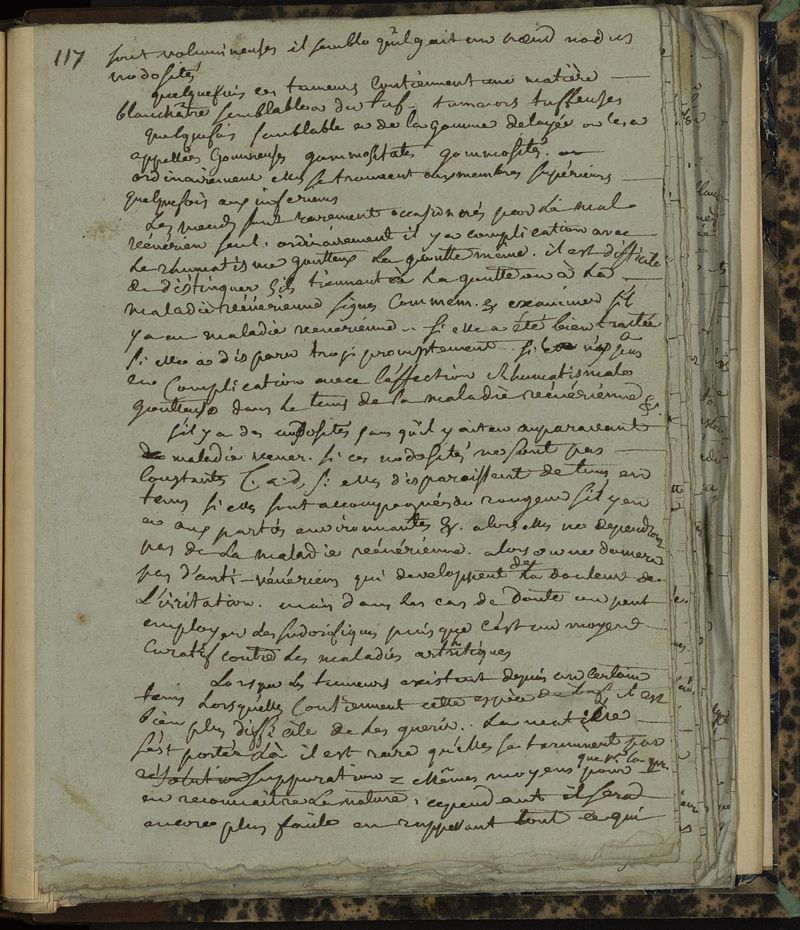 117 sont volumineuses il semble qu'il y ait un noeud nodus
nodosités
quelquefois ces tumeurs contiennent une matière
blanchâtre semblable a du tuf - tumeurs tuffeuses
quelquefois semblable a de la gomme delayée on les a
appellées Gommeuses gommositates gommosités.
ordinairement elles se trouvent aux membres supérieurs
quelquefois aux inferieurs
Les noeuds sont rarement occasionnés par la mal
vénérien seul. ordinairement il y a complication avec
le rhumatisme goutteux la goutte même. il est difficile
de distinguer s'ils tiennent a la goutte ou a la
maladie vénérienne signes Commem. & examiner s'il
y a eu maladie venerienne .. si elle a été bien traitée
si elle a disparu trop promptement .. si n'a pas
eu Complication avec l'affection Rhumatismale
goutteuse dans le tems de la maladie vénérienne &.
s'il y a des nodosités sans qu'il y ait eu auparavant
de maladie vener. si ces nodosités ne sont pas
Constantes C. a d, si elles disparaissent de tems en
tems si elles sont accompagnées de rougeur s'il y en
a aux parties environnantes &. alors elles ne dependent
pas de la maladie vénérienne. alors on ne donnera
pas d'anti-vénériens qui developpent des la douleur de
L'irritation. mais dans les cas de Doute on peut
employer les sudorifiques puisque c'est un moyen
Curatif contre les maladies arthritiques
Lorsque les tumeurs existent depuis un certain
tems Lorsqu'elles Contiennent cette espèce de tuf, il est
bien plus difficile de les guerir .. La matière
s'est portée là il est rare qu'elles se terminent par
que par la
résolution suppuration = Mêmes moyens pour
en reconnaitre La nature, cependant il sera
encore plus facile en rappellant tout ce qui